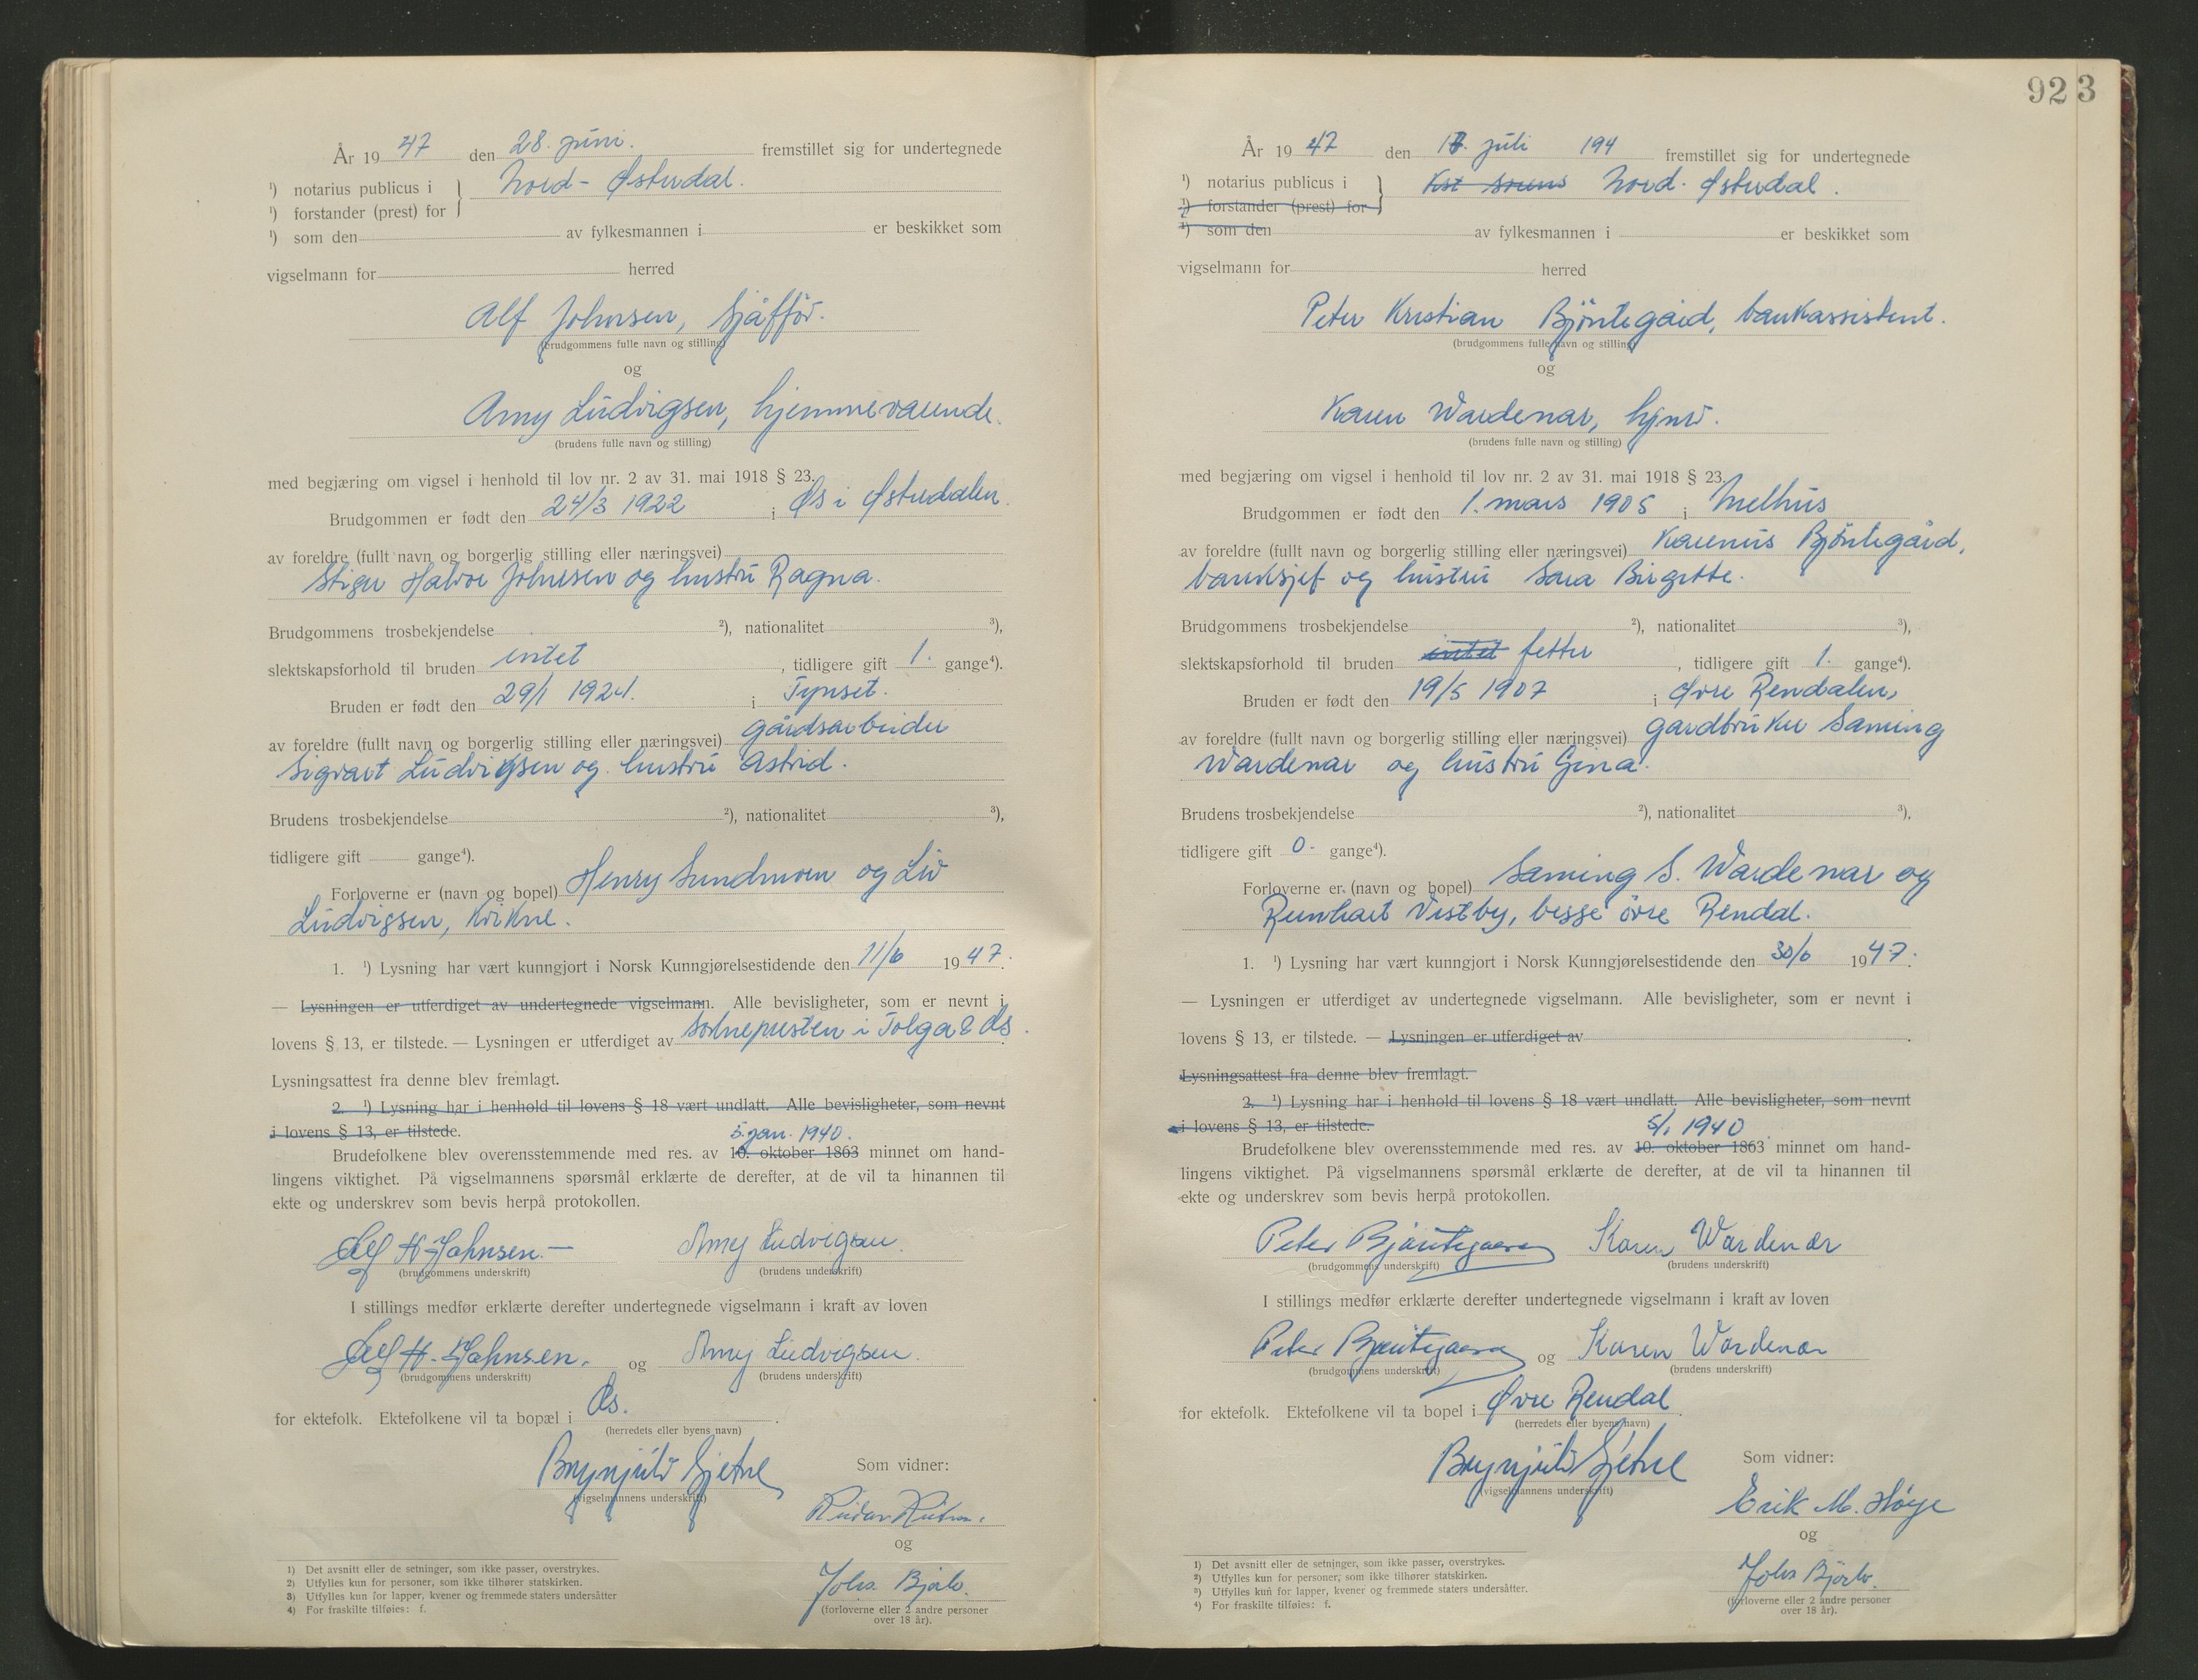 År 19 47 den 28. juni. fremstillet sig for undertegnede
¹) notarius publicus i } Nord-Østerdal.
¹) forstander (prest) for
¹) som den av fylkesmannen i er beskikket som
vigselmann for herred
Alf Johnsen, sjåfför.
(brudgommens fulle navn og stilling)
og
Amy Ludvigsen, hjemmeværende.
(brudens fulle navn og stilling)
med begjæring om vigsel i henhold til lov nr. 2 av 31. mai 1918 § 23.
Brudgommen er født den 24/3 1922 i Os i Østerdalen.
av foreldre (fullt navn og borgerlig stilling eller næringsvei)
Halvor Johnsen og hustru Ragna.
Brudgommens trosbekjendelse ²), nationalitet ³),
slektskapsforhold til bruden intet, tidligere gift 1. gange⁴).
Bruden er født den 29/1 1924. i Tynset.
av foreldre (fullt navn og borgerlig stilling eller næringsvei) gårdsarbeider
Sigvart Ludvigsen og hustru Astrid.
Brudens trosbekjendelse ²), nationalitet ³),
tidligere gift gange⁴).
Forloverne er (navn og bopel) Henry Sundmoen og Liv
Ludvigsen, Kvikne.
1. ¹) Lysning har vært kunngjort i Norsk Kunngjørelsestidende den 11/6 1947.
— Lysningen er utferdiget av undertegnede vigselmann. Alle bevisligheter, som er nevnt i
lovens § 13, er tilstede. — Lysningen er utferdiget av soknepresten i Tolga & Os.
Lysningsattest fra denne blev fremlagt.
2. ¹) Lysning har i henhold til lovens § 18 vært undlatt. Alle bevisligheter, som nevnt
i lovens § 13, er tilstede.
5. jan. 1940.
Brudefolkene blev overensstemmende med res. av 10. oktober 1863 minnet om hand-
lingens viktighet. På vigselmannens spørsmål erklærte de derefter, at de vil ta hinannen til
ekte og underskrev som bevis herpå protokollen.
Alf H. Johnsen.— Amy Ludvigsen.
(brudgommens underskrift) (brudens underskrift)
I stillings medfør erklærte derefter undertegnede vigselmann i kraft av loven
Alf H. Johnsen. og Amy Ludvigsen.
(brudgommens underskrift) (brudens underskrift)
for ektefolk. Ektefolkene vil ta bopæl i Os.
(herredets eller byens navn)
Brynjulv Gjetne
(vigselmannens underskrift)
Som vidner:
og
Johs Bjørlo.
(forloverne eller 2 andre personer
over 18 år).
1) Det avsnitt eller de setninger, som ikke passer, overstrykes.
2) Utfylles kun for personer, som ikke tilhører statskirken.
3) Utfylles kun for lapper, kvener og fremmede staters undersåtter
4) For fraskilte tilføies: f.
923
År 19 47 den juli 194 fremstillet sig for undertegnede
¹) notarius publicus i } Nord-Østerdal.
¹) forstander (prest) for
¹) som den av fylkesmannen i er beskikket som
vigselmann for herred
Peter Kristian Bjöntegård, bankassistent.
(brudgommens fulle navn og stilling)
og
Karen Wardenær, hjmv.
(brudens fulle navn og stilling)
med begjæring om vigsel i henhold til lov nr. 2 av 31. mai 1918 § 23.
Brudgommen er født den 1. mars 1905 i Melhus
av foreldre (fullt navn og borgerlig stilling eller næringsvei) Karenus Bjöntegård,
banksjef og hustru Sara Birgitte.
Brudgommens trosbekjendelse ²), nationalitet ³),
slektskapsforhold til bruden intet fetter, tidligere gift 1. gange⁴).
Bruden er født den 19/5 1907 i Øvre Rendalen,
av foreldre (fullt navn og borgerlig stilling eller næringsvei) gardbruker Saming
Wardenær og hustru Gina.
Brudens trosbekjendelse ²), nationalitet ³),
tidligere gift 0. gange⁴).
Forloverne er (navn og bopel) Saming S. Wardenær og
Reinhart Vestby, begge övre Rendal.
1. ¹) Lysning har vært kunngjort i Norsk Kunngjørelsestidende den 30/6 1947.
— Lysningen er utferdiget av undertegnede vigselmann. Alle bevisligheter, som er nevnt i
lovens § 13, er tilstede. — Lysningen er utferdiget av
Lysningsattest fra denne blev fremlagt.
2. ¹) Lysning har i henhold til lovens § 18 vært undlatt. Alle bevisligheter, som nevnt
i lovens § 13, er tilstede.
5/1 1940.
Brudefolkene blev overensstemmende med res. av 10. oktober 1863 minnet om hand-
lingens viktighet. På vigselmannens spørsmål erklærte de derefter, at de vil ta hinannen til
ekte og underskrev som bevis herpå protokollen.
Peter Bjöntegaard Karen Wardenær
(brudgommens underskrift) (brudens underskrift)
I stillings medfør erklærte derefter undertegnede vigselmann i kraft av loven
Peter Bjöntegaard og Karen Wardenær
(brudgommens underskrift) (brudens underskrift)
for ektefolk. Ektefolkene vil ta bopel i Øvre Rendal.
(herredets eller byens navn)
Brynjulv Gjetne
(vigselmannens underskrift)
Som vidner:
Erik M. Høye
og
Johs Bjørlo.
(forloverne eller 2 andre personer
over 18 år).
1) Det avsnitt eller de setninger, som ikke passer, overstrykes.
2) Utfylles kun for personer, som ikke tilhører statskirken.
3) Utfylles kun for lapper, kvener og fremmede staters undersåtter.
4) For fraskilte tilføies: f.